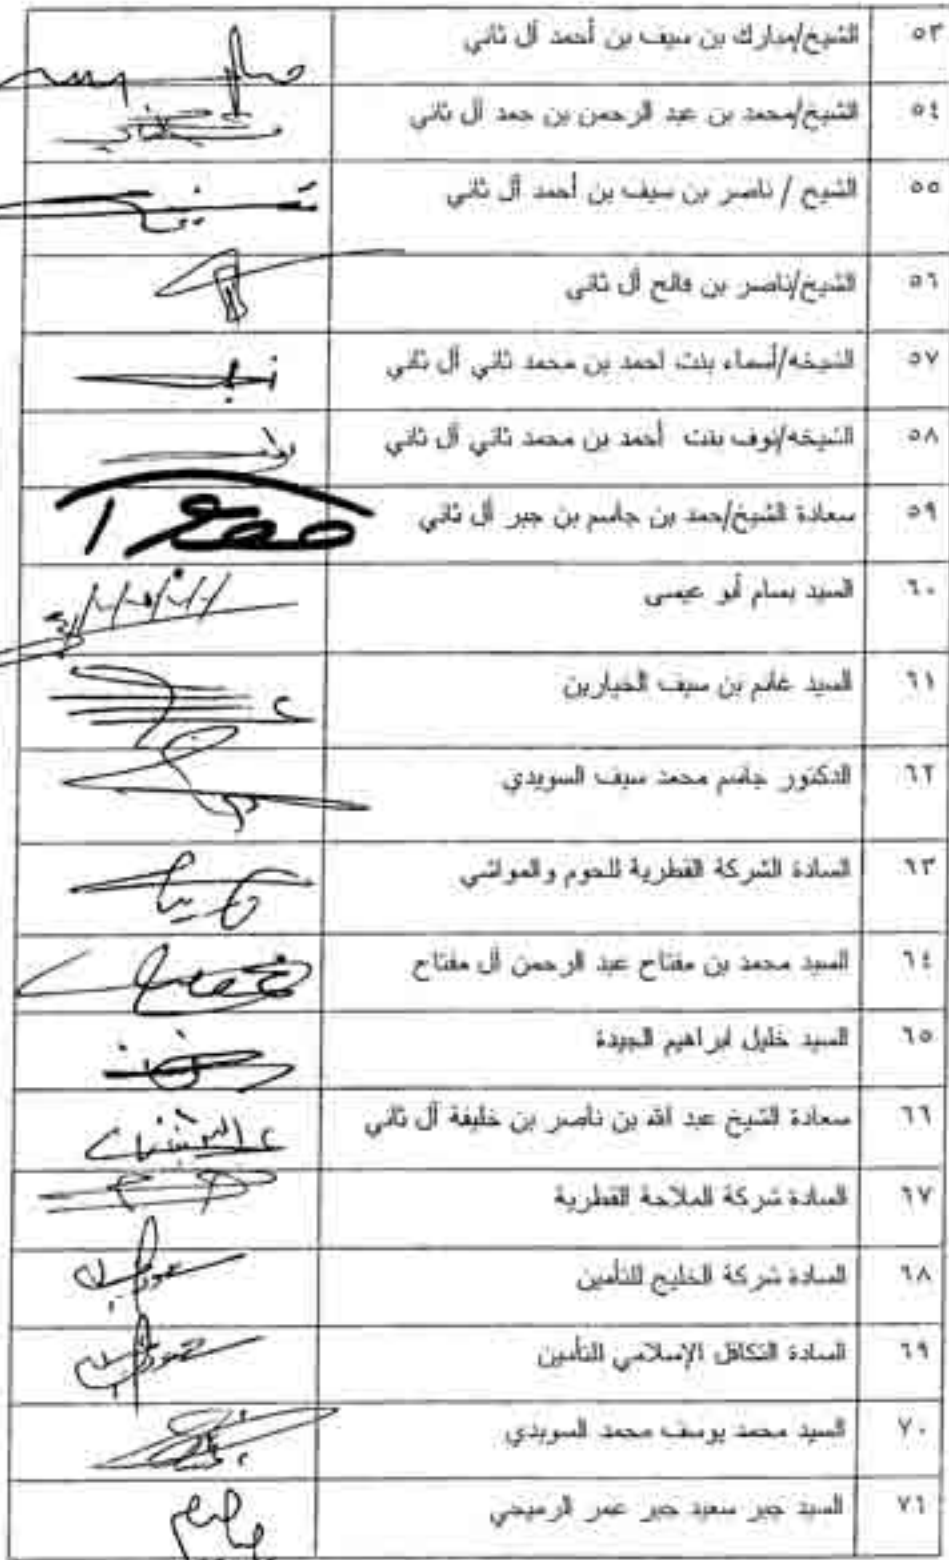 ٥٣ الشيخ/مبارك بن سيف بن أحمد آل ثاني
٥٤ الشيخ/محمد بن عبد الرحمن بن حمد آل ثاني
٥٥ الشيخ / ناصر بن سيف بن أحمد آل ثاني
٥٦ الشيخ/ناصر بن فالح آل ثاني
٥٧ الشيخه/أسماء بنت احمد بن محمد ثاني آل ثاني
٥٨ الشيخه/نوف بنت أحمد بن محمد ثاني آل ثاني
٥٩ سعادة الشيخ/حمد بن جاسم بن جبر آل ثاني
٦٠ السيد بسام أبو عيسى
٦١ السيد غانم بن سيف الخيارين
٦٢ الدكتور جاسم محمد سيف السويدي
٦٣ السادة الشركة القطرية للحوم والمواشي
٦٤ السيد محمد بن مفتاح عبد الرحمن آل مفتاح
٦٥ السيد خليل ابراهيم الجيدة
٦٦ سعادة الشيخ عبد الله بن ناصر بن خليفة آل ثاني
٦٧ السادة شركة الملاحة القطرية
٦٨ السادة شركة الخليج للتأمين
٦٩ السادة التكافل الإسلامي للتأمين
٧٠ السيد محمد يوسف محمد السويدي
٧١ السيد جبر سعيد جبر عمر الرميحي